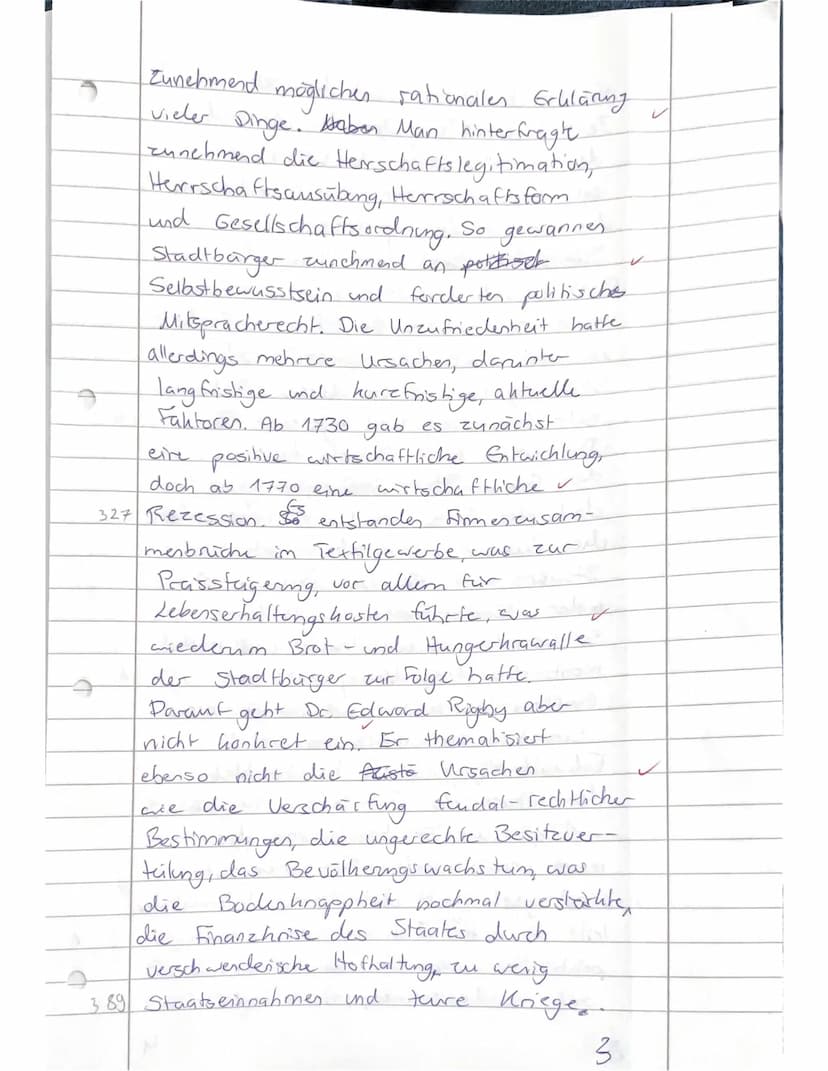 zunehmend möglichen rationalen Erklärung
vieler Dinge. Haben Man hinterfragte
zunehmend die Herrschaftslegitimation,
Herrschaftsausübung, Herrschaftsform
und Gesellschaftsordnung. So gewannen
Stadtbürger zunehmend an politisch
Selbstbewusstsein und forderten politisches
Mitspracherecht. Die Unzufriedenheit hatte
allerdings mehrere Ursachen, darunter
langfristige und kurzfristige, aktuelle
Faktoren. Ab 1730 gab es zunächst
eine positive wirtschaftliche Entwicklung,
doch ab 1770 eine wirtschaftliche
327 Rezession. Es entstanden Firmenzusam-
menbrüche im Textilgewerbe, was zur
Preissteigerung, vor allem für
Lebenserhaltungskosten führte, was
wiederum Brot- und Hungerkrawalle
der Stadtbürger zur Folge hatte.
Darauf geht Dr. Edward Rigby aber
nicht konkret ein. Er thematisiert
ebenso nicht die Ursachen
wie die Verschärfung feudal-rechtlicher
Bestimmungen, die ungerechte Besitzver-
teilung, das Bevölkerungswachstum, was
die Bodenknappheit nochmal verstärkte,
die Finanzkrise des Staates durch
verschwenderische Hofhaltung, zu wenig
389 Staatseinnahmen und teure Kriege.
3